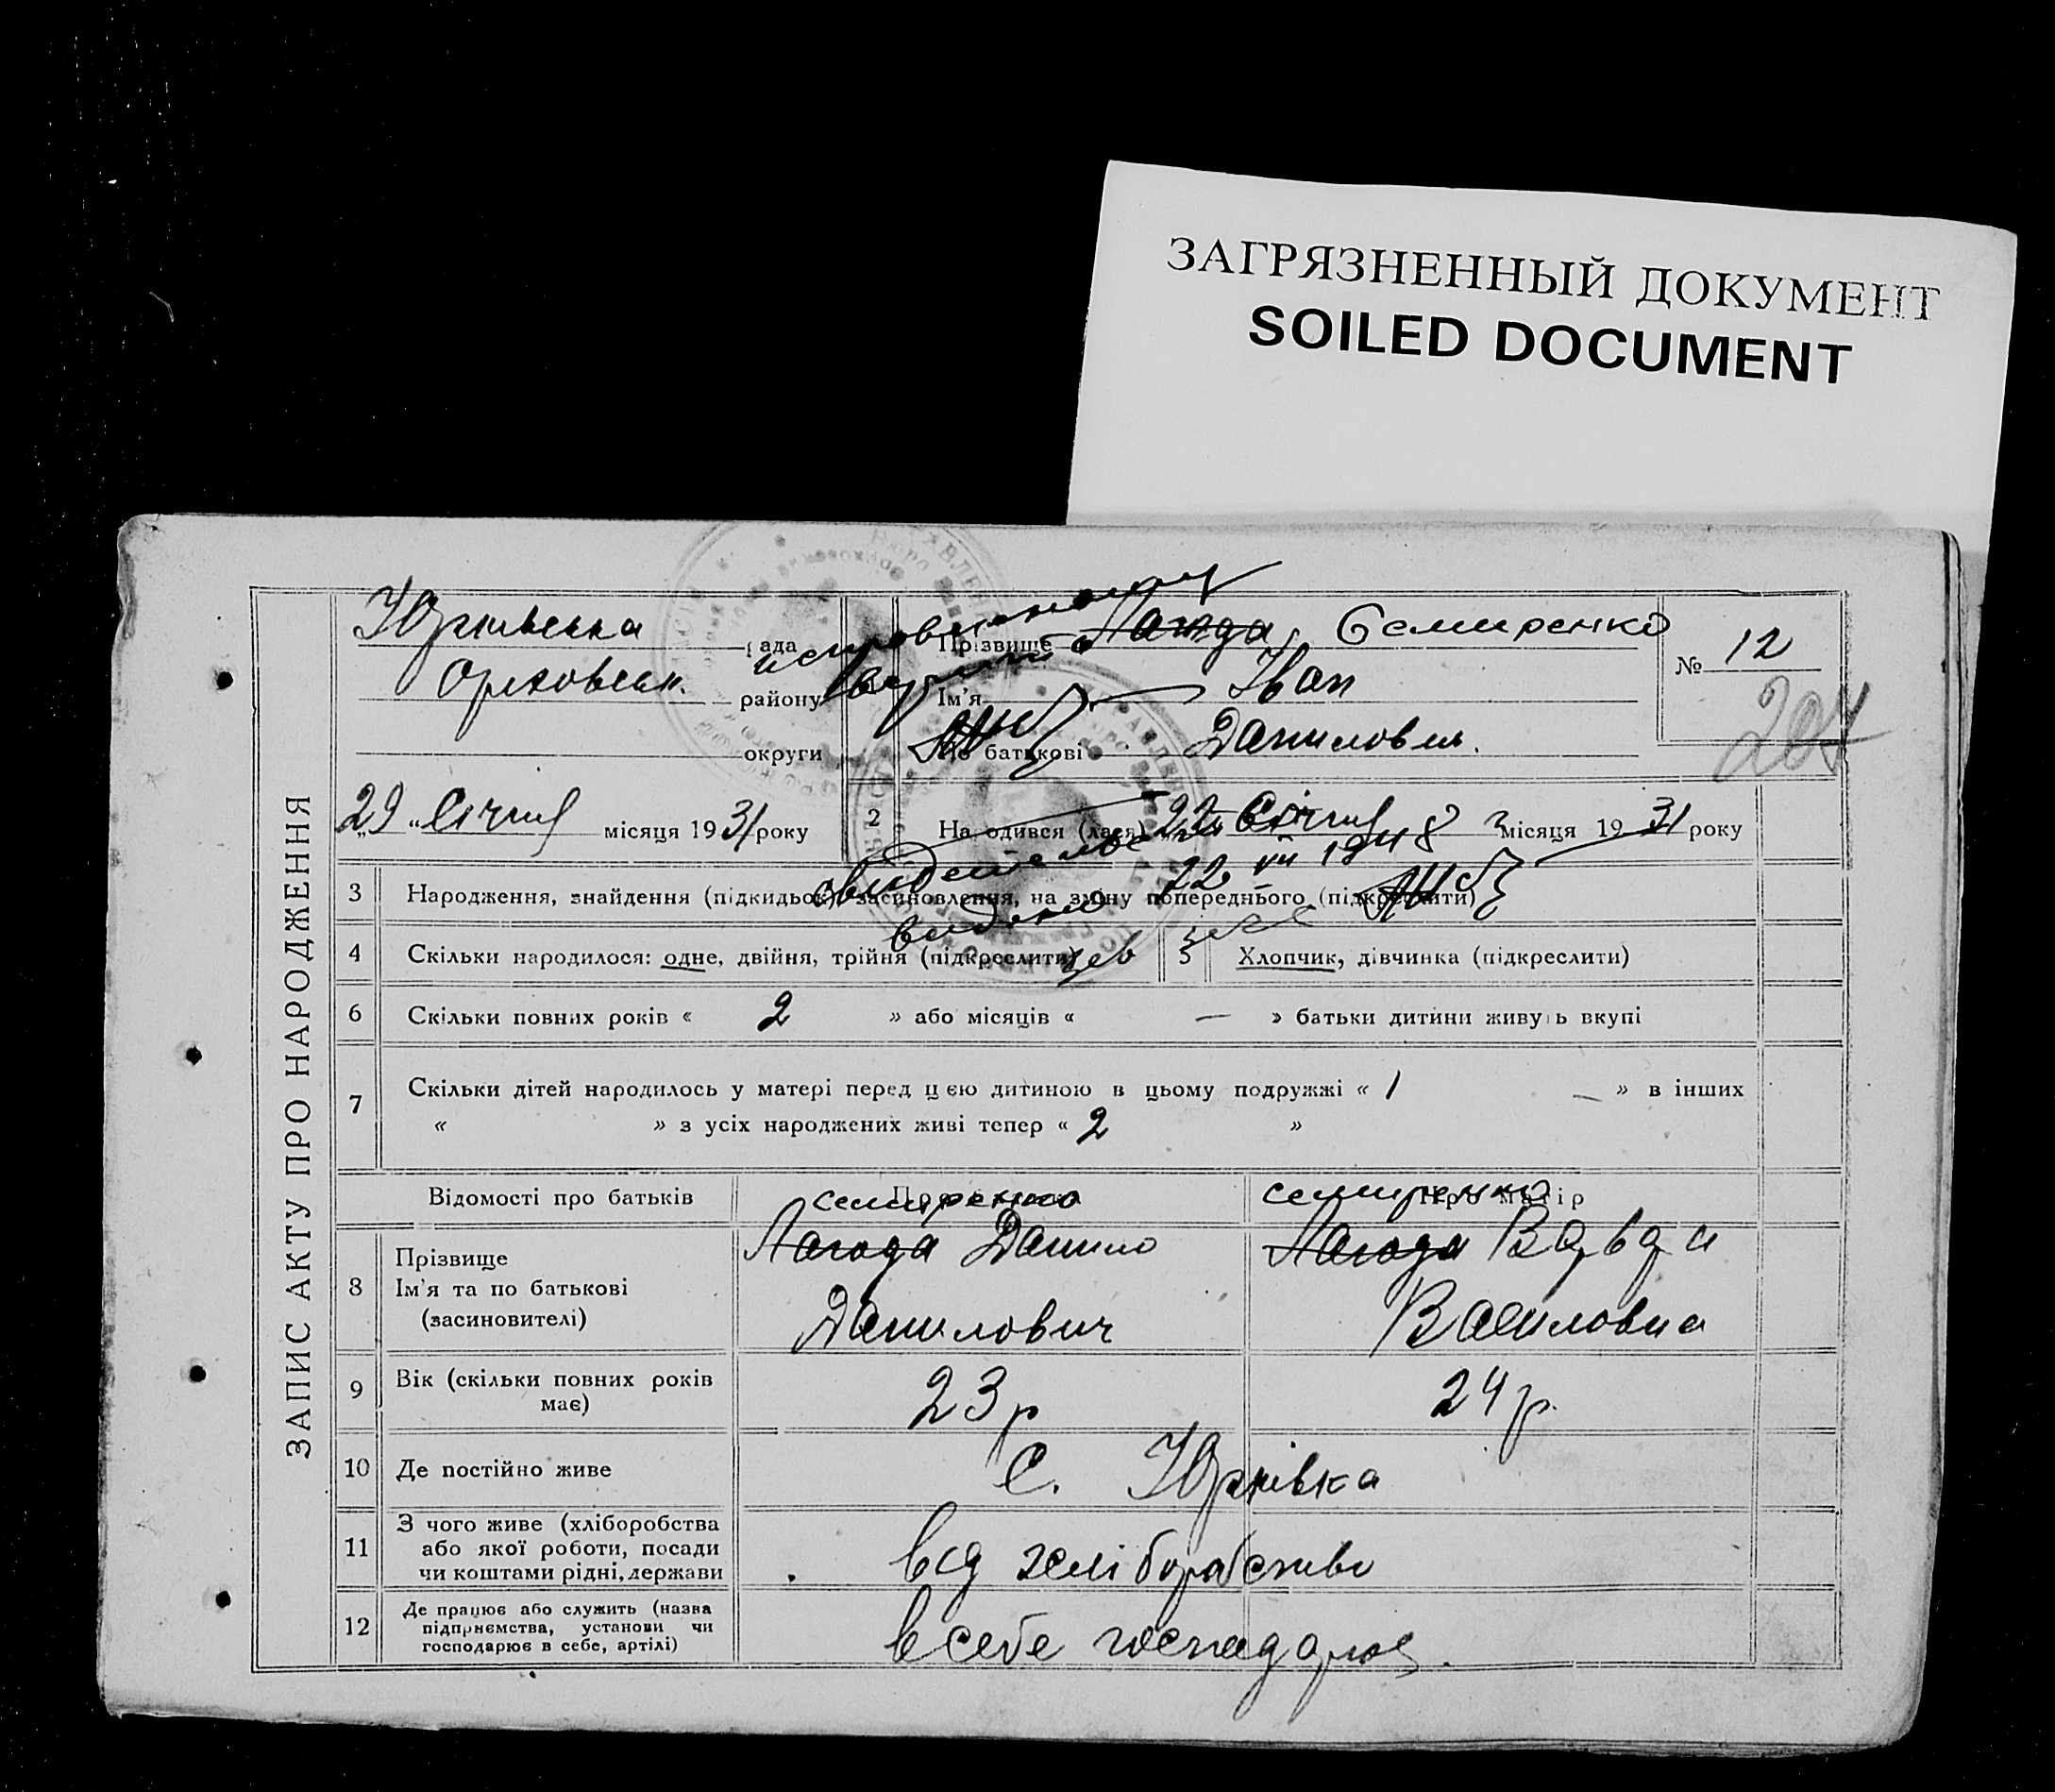 ЗАГРЯЗНЕННЫЙ ДОКУМЕНТ
SOILED DOCUMENT
ЗАПИС АКТУ ПРО НАРОДЖЕННЯ
Юрківська рада
Оріховськ. району
округи
29 „ Січня місяця 1931 року
1 Прізвище Лагода Семиренко
Ім'я Іван
По батькові Данилович.
№ 12
204
исправленому верить
2 На одився (лася) 22 Січня місяця 1931 року
свидетельство 22 VIII 1948
выдано
3 Народження, знайдення (підкидьок), засиновлення, на зміну попереднього (підкреслити)
4 Скільки народилося: одне, двійня, трійня (підкреслити)
5 Хлопчик, дівчинка (підкреслити)
6 Скільки повних років « 2 » або місяців « — » батьки дитини живуть вкупі
7 Скільки дітей народилось у матері перед цією дитиною в цьому подружжі « 1 — » в інших
« » з усіх народжених живі тепер « 2 »
Відомості про батьків
Про батька
Про матір
Семиренко
Семиренко
8 Прізвище
Ім'я та по батькові
(засиновителі)
Лагода Данило
Данилович
Лагода
Василовна
9 Вік (скільки повних років
має)
23 р
24 р.
10 Де постійно живе
С. Юрківка
11 З чого живе (хліборобства
або якої роботи, посади
чи коштами рідні, держави
від хліборобства
12 Де працює або служить (назва
підприємства, установи чи
господарює в себе, артілі)
в себе господарює.